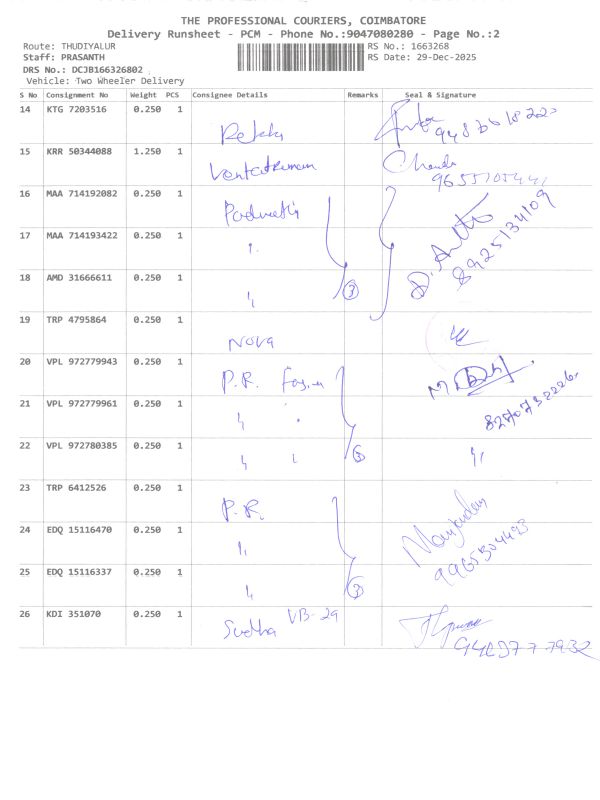 THE PROFESSIONAL COURIERS, COIMBATORE
Delivery Runsheet - PCM - Phone No.:9047080280 - Page No.:2
Route: THUDIYALUR RS No.: 1663268
Staff: PRASANTH RS Date: 29-Dec-2025
DRS No.: DCJB166326802
Vehicle: Two Wheeler Delivery
S No Consignment No Weight PCS Consignee Details Remarks Seal & Signature
14 KTG 7203516 0.250 1
15 KRR 50344088 1.250 1 9655705441
16 MAA 714192082 0.250 1
17 MAA 714193422 0.250 1 " 8925134109
18 AMD 31666611 0.250 1 " 3
19 TRP 4795864 0.250 1 Nova
20 VPL 972779943 0.250 1 P.R.
21 VPL 972779961 0.250 1 "
22 VPL 972780385 0.250 1 " " 3 "
23 TRP 6412526 0.250 1 P.R.
24 EDQ 15116470 0.250 1 "
25 EDQ 15116337 0.250 1 " 3 9965304493
26 KDI 351070 0.250 1 Sudha VB-29